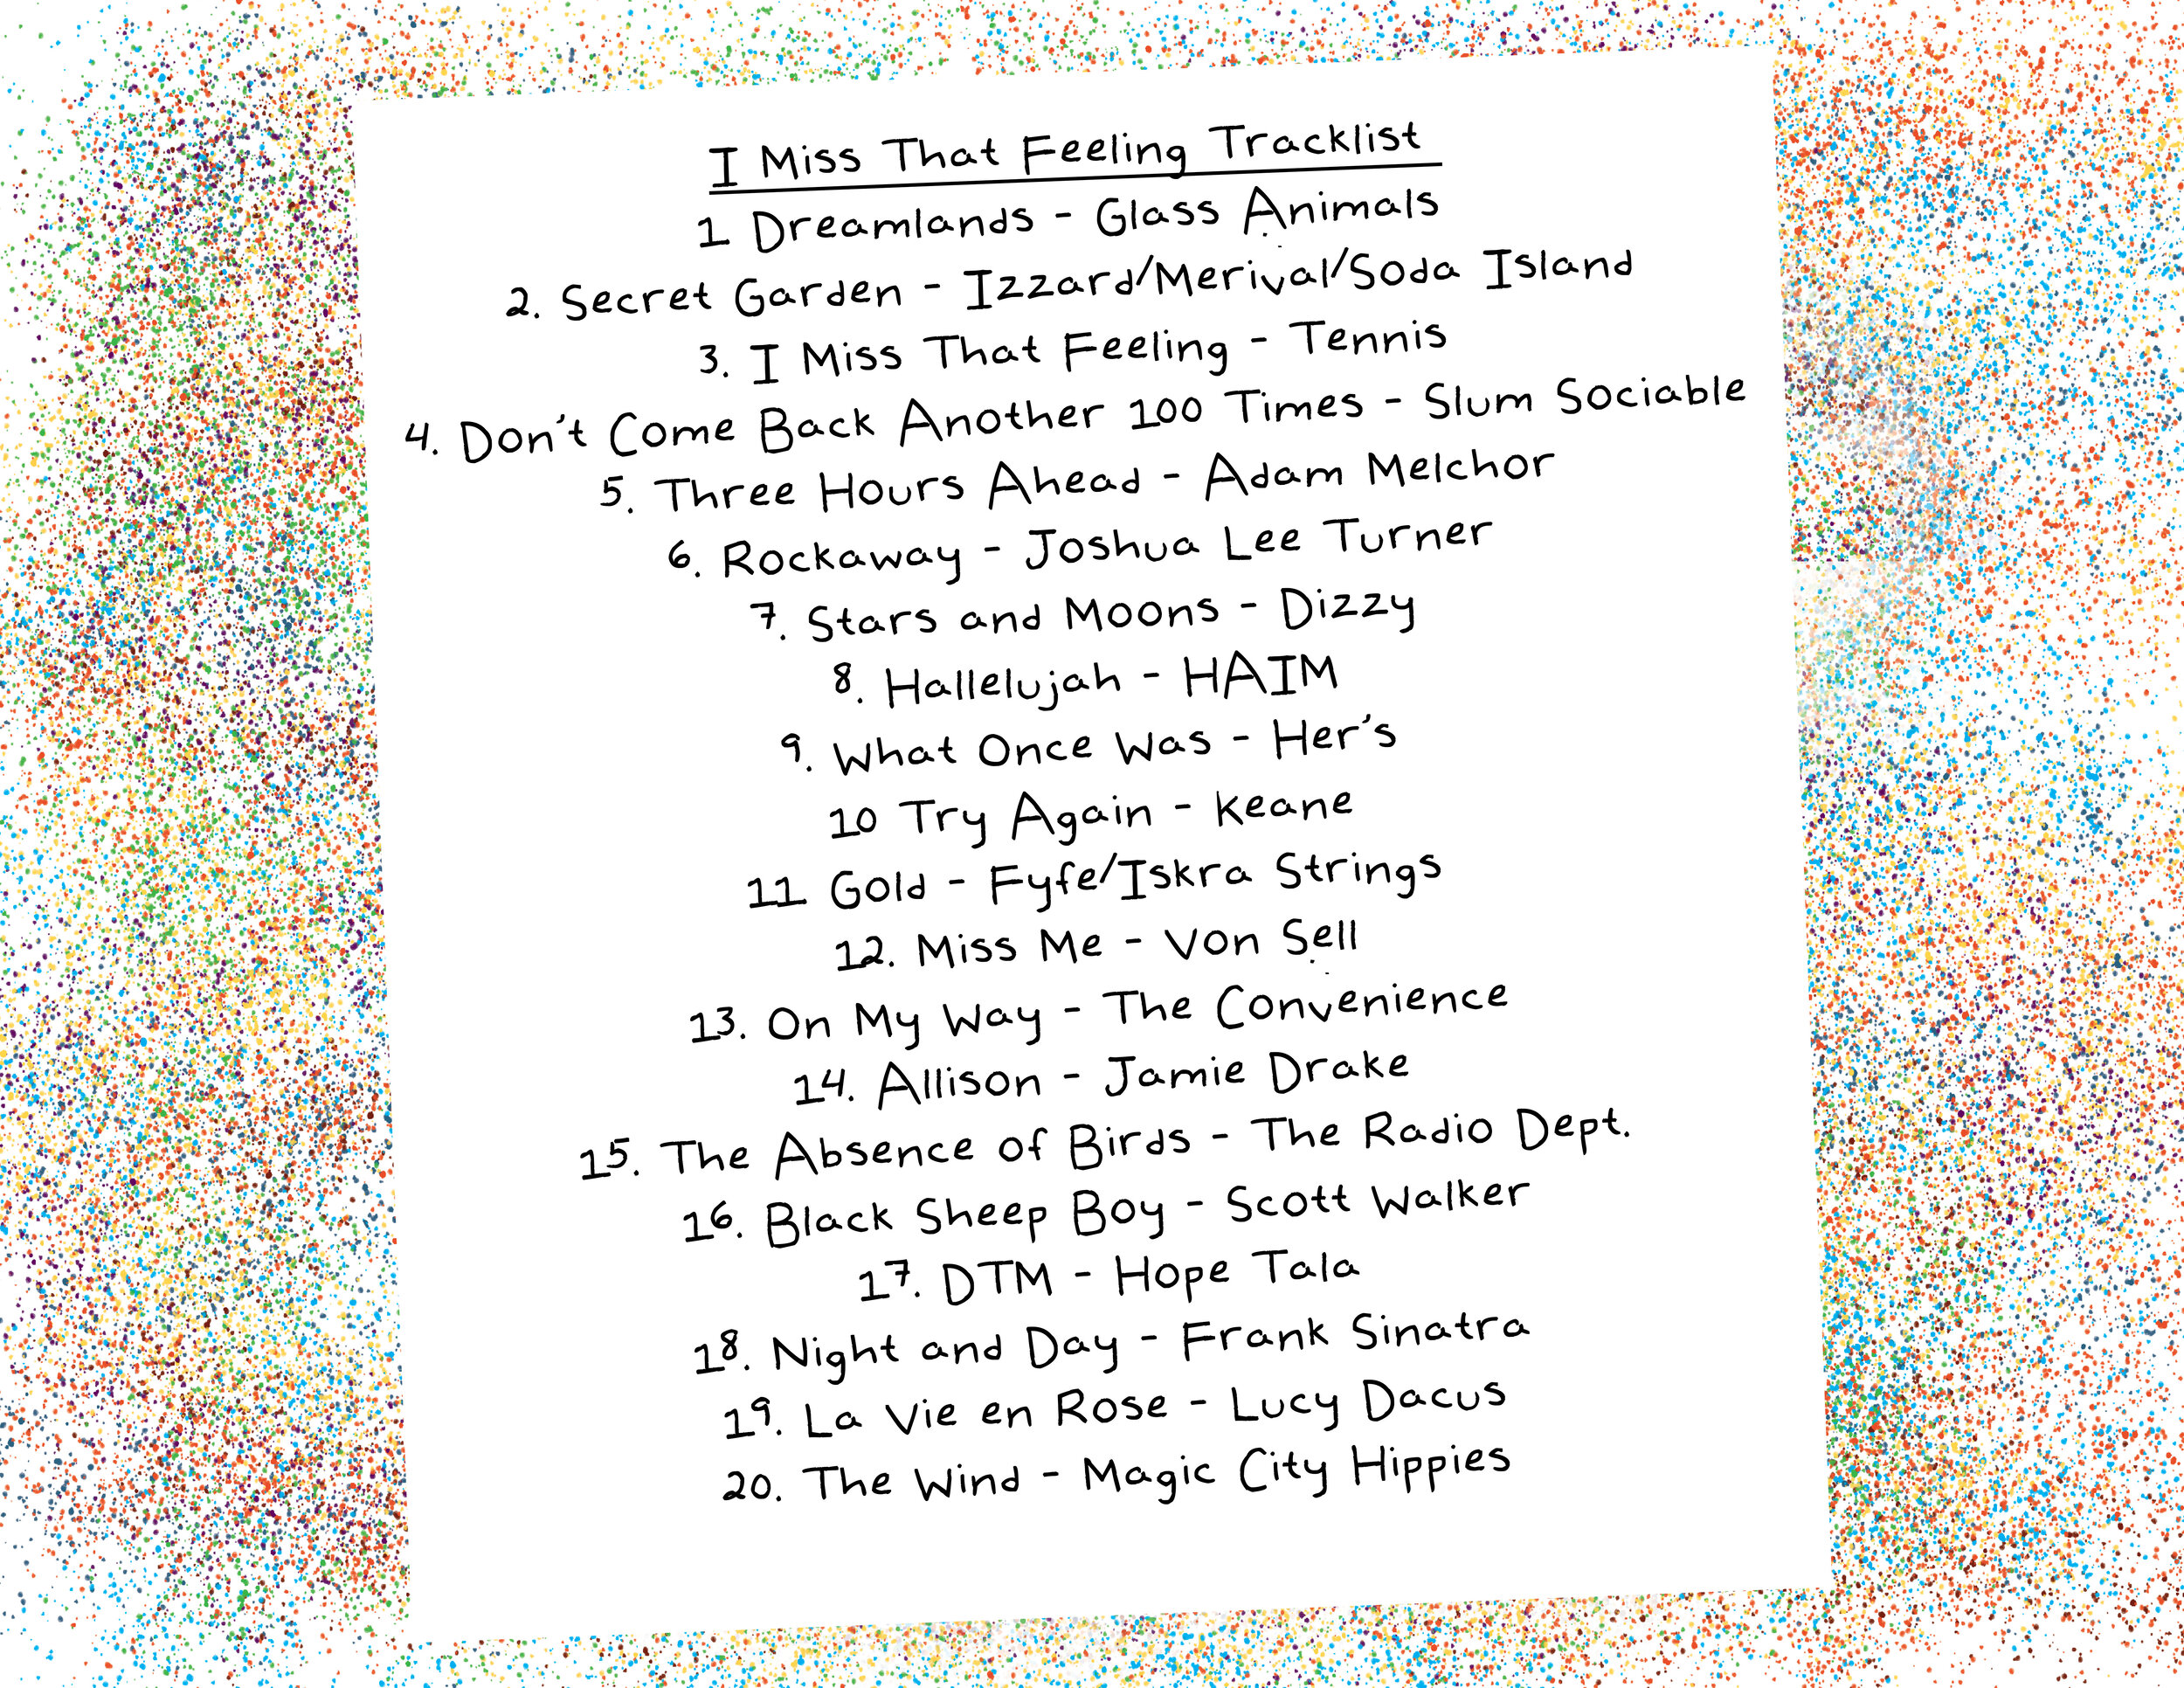 I Miss That Feeling Tracklist
1 Dreamlands - Glass Animals
2. Secret Garden - Izzard/Merival/Soda Island
3. I Miss That Feeling - Tennis
4. Don't Come Back Another 100 Times - Slum Sociable
5. Three Hours Ahead - Adam Melchor
6. Rockaway - Joshua Lee Turner
7. Stars and Moons - Dizzy
8. Hallelujah - HAIM
9. What Once Was - Her's
10 Try Again - Keane
11 Gold - Fyfe/Iskra Strings
12. Miss Me - Von Sell
13. On My Way - The Convenience
14. Allison - Jamie Drake
15. The Absence of Birds - The Radio Dept.
16. Black Sheep Boy - Scott Walker
17. DTM - Hope Tala
18. Night and Day - Frank Sinatra
19. La Vie en Rose - Lucy Dacus
20. The Wind - Magic City Hippies